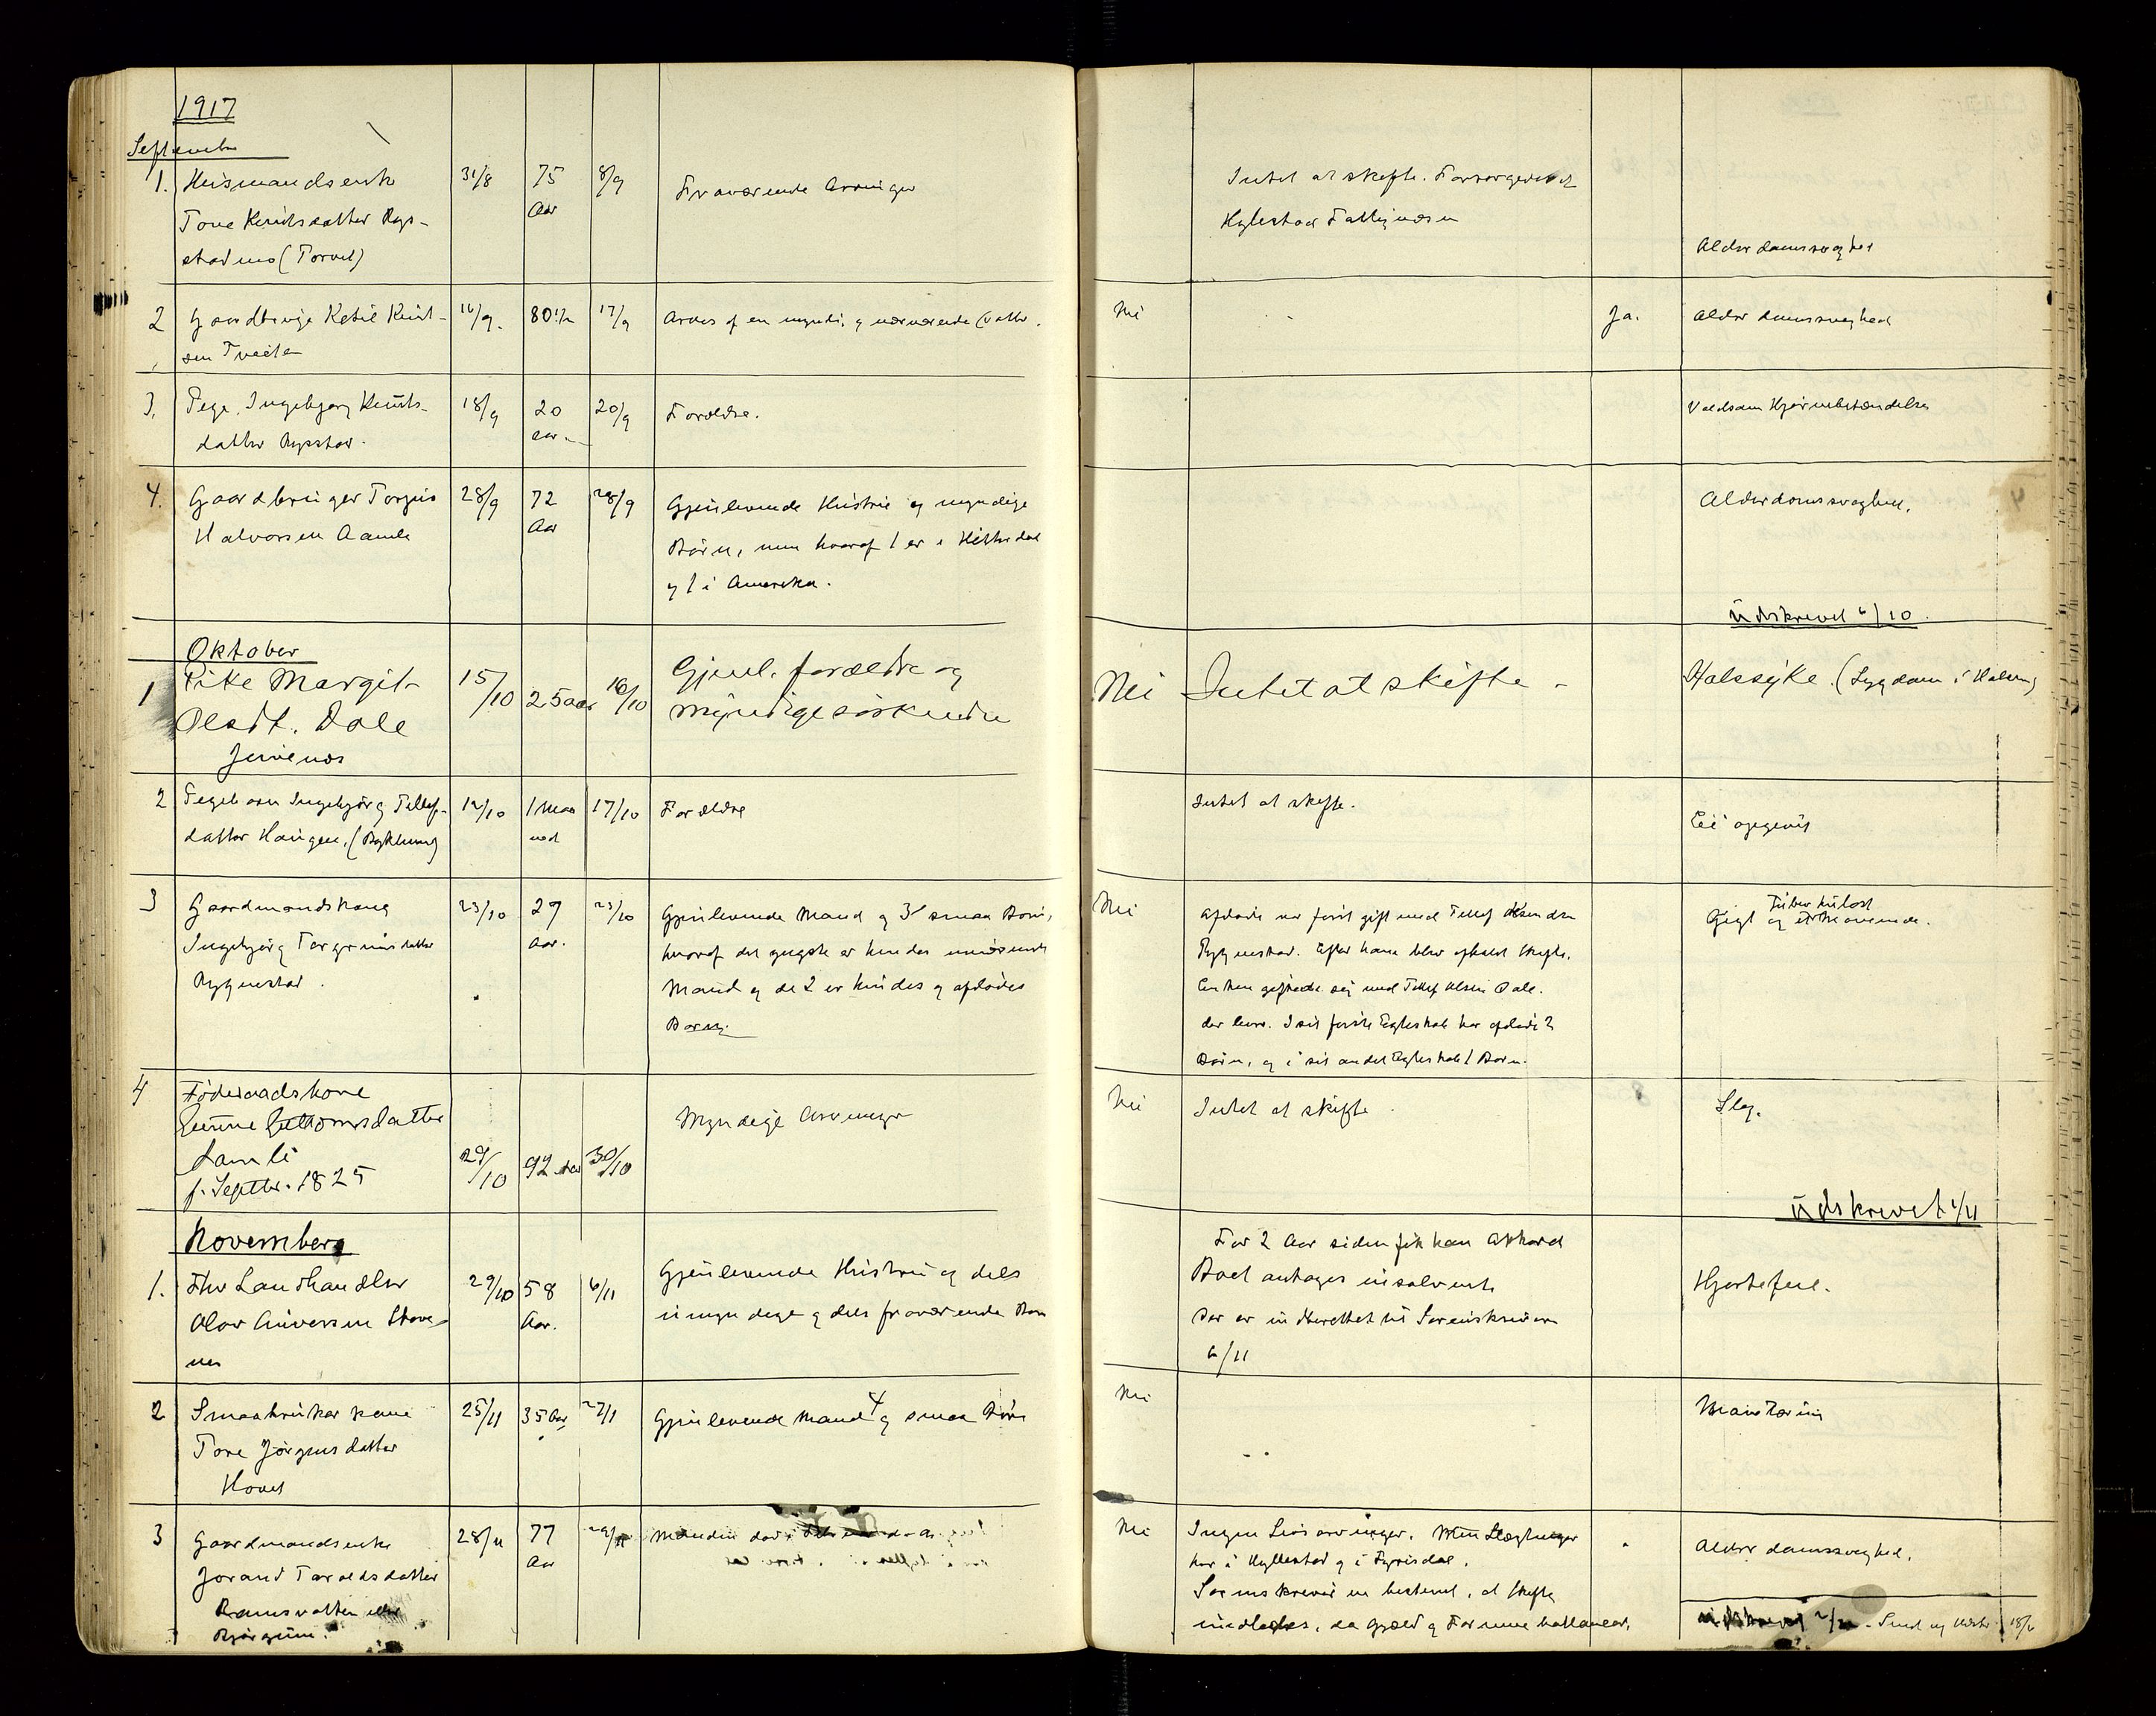 1917
September
1. Husmandsenke 31/8 75 8/9 Fraværende Arvinger
Tone Knutsdatter Rys- Aar
stadmo (Torvil)
Intet at skifte. Forsørgedes af
Hylestad Fattigvæsen
Alderdomssvaghed
2 Gaardbruger Ketil Knut- 16/9. 80 1/2 17/9 Arves af en myndig og nærværende Datter.
sen Tveiten
Nei Ja. Alderdomssvaghed
3. Pige Ingebjørg Knuts- 18/9 20 20/9 Forældre.
datter Rysstad. aar.
Voldsom Hjernebetændelse
4. Gaardbruger Torgius 28/9 72 28/9 Gjenlevende Hustru og myndige
Halvorsen Aamli Aar Børn, men hvoraf 1 er i Hitterdal
og 1 i Amerika.
Alderdomssvaghed.
Udskrevet 6/10.
Oktober
1 Pike Margit 15/10 25 aar 16/10 Gjenl. forældre og
Olsdt. Dale myndige søskende
Juvenæs
Nei Intet at skifte - Halssyke. (Sygdom i Halsen)
2 Pigebarn Ingebjørg Tellef- 12/10 1 Maa 17/10 Forældre
datter Haugen. (Ryklum) ned
Intet at skifte. Ei opgivet
3 Gaardmandskone 23/10 29 23/10 Gjenlevende Mand og 3 smaa Børn,
Ingebjørg Torgrimsdatter Aar. hvoraf det yngste er hendes nuværende
Rygnestad. Mand og de 2 er hendes og afdødes
Børn.
Nei Afdøde var først gift med Tellef Knudsen
Rygnestad. Efter ham blev afholdt Skifte.
En hun giftede sig med Tellef Olsen Dale.
der lever. I sit første Egteskab har afdøde 2
Børn, og i sit andet Egteskab 1 Barn.
Tuberkuløst
Gigt og
4 Føderaadskone
Gunne Guttormsdatter Myndige Arvinger
Lamli 29/10 92 Aar 30/10
f. Septbr. 1825
Nei Intet at skifte. Slag.
Udskrevet 1/11
November
1. Fhv Landhandler 29/10 58 6/11 Gjenlevende Hustru og dels
Olav Aanversen Stave- Aar. umyndige og dels fraværende Børn
nes
For 2 Aar siden fik han Akkord
Boet antages insolvent
Der er indberettet til Sorenskriveren
6/11
Hjertefeil.
2 Smaabrukerkone 25/11 35 Aar 27/11 Gjenlevende Mand og 4 smaa Børn
Tone Jørgensdatter
Hovet
Nei Mavetæring
3 Gaardmandsenke 28/11 77 29/11 Manden død.
Jorand Taraldsdatter Aar
Ramsvatten eller
Bjørgum.
Nei Ingen Livsarvinger. Men Slægtninger
her i Hyllestad og i Fyrisdal.
Sorenskriveren bestemt, at Skifte
indledes, da Gjæld og Formue
Alderdomssvaghed.